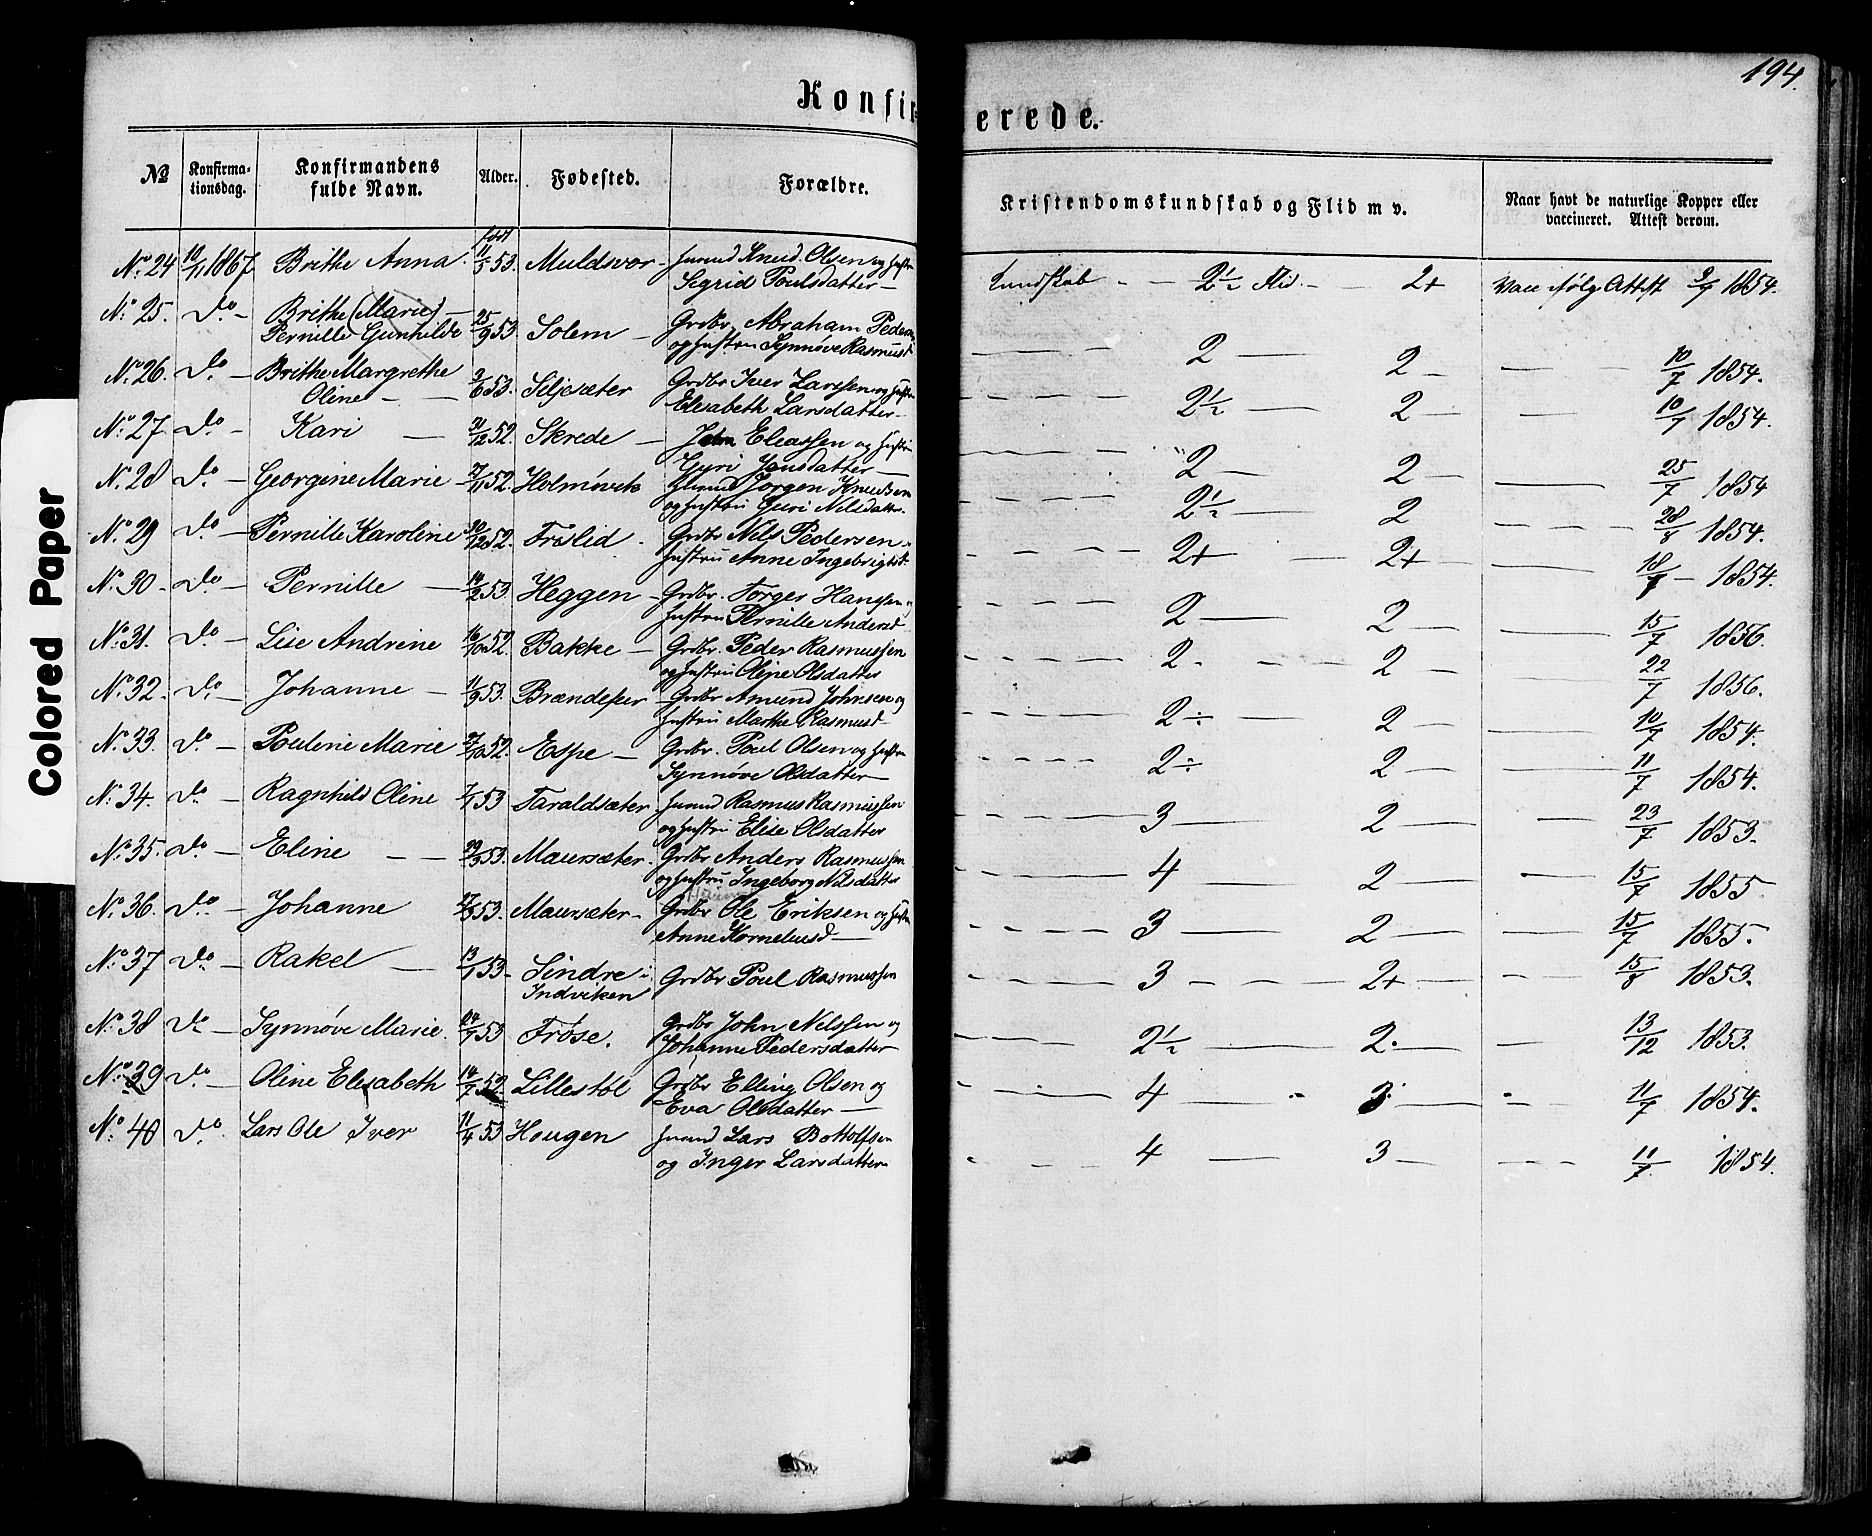 194.
Konfir=
erede.
№
Konfirma-
tionsdag.
Konfirmandens
fulde Navn.
Alder.
Fødested.
Forældre.
Kristendomskundskab og Flid m v.
Naar havt de naturlige Kopper eller
vaccineret. Attest derom.
født
No. 24 10/11 1867 Brithe Anna. 11/5 53. Muldsvor - Huumd Knud Olsen og Hustru
Sigrid Poulsdatter -
Kundskab - - 2½ Flid - - 2+ Vacc ifølg Attest 1854.
No. 25. Do - Brithe (Marie) -
Pernille Gunhilde 25/9 53 Solem - Grdbr. Abraham Peders
og Hustru Synnøve Rasmusd
2 - 2 - 10/7 1854.
No. 26. Do - Brithe Margrethe
Oline - 2/6 53. Siljesæter Grdbr Iver Larssen og Hustru
Elisabeth Larsdatter -
2½ - 2 - 10/7 1854.
No. 27. Do - Kari - 21/12 52. Skrede - John Eleassen og Hustru
Gyri Jonsdatter -
2 - 2 - 25/7 1854
No. 28 Do - Georgine Marie - 27/11 52. Holmøvik Huumd Jørgen Knudsen
og Hustru Guri Nilsdatter.
2½ - 2 28/8 1854.
No. 29 Do - Pernille Karoline 30/12 52. Frølid. Grdbr Nils Pedersen
Hustru Anne Ingebrigtsd.
2+ - 2+ - 18/7 - 1854.
No. 30 - Do - Pernille - 14/2 53. Heggen - Grdbr. Torger Hanssen og
Hustru Pernille Andersd
2 - 2 - 15/7 1856.
No. 31. Do - Lise Andrine 16/10 52. Bakke - Grdbr. Peder Rasmussen
og Hustru Oline Olsdatter
2 - 2 - 22/7 1856.
No. 32. Do - Johanne - 11/9 53. Brændeseer - Grdbr Amund Johnsen og
Hustru Marthe Rasmusd
2÷ 2 - 10/7 1854.
No. 33. Do - Pouline Marie 27/10 52. Espe - Grdbr. Poul Olsen og Hustru
Synnøve Olsdatter -
2÷ 2 - 11/7 1854.
No. 34. Do - Ragnhild Oline 7/1 53 Taraldsæter. Huumd Rasmus Rasmussen
og Hustru Elise Olsdatter
3 - 2 - 23/7 1853.
No. 35. Do - Eline - - 29/3 53. Maursæter. Grdbr Anders Rasmussen
og Hustru Ingeborg Nilsdatter
4 - 2 - 15/7 1855
No. 36. Do - Johanne 53. Maursæter - Grdbr Ole Eriksen og Hustru
Anne Korneliusd -
3 - 2 - 15/7 1855.
No. 37 Do - Rakel - 13/1 53 - Sindre i
Indviken Grdbr Poul Rasmussen
3 - - 2+ - 15/8 1853.
No. 38 Do - Synnøve Marie. 53 Frøse. Grdbr John Nilssen og
Johanne Pedersdatter
2½ - 2. - 13/12 1853.
No. 39 Do - Oline Elisabeth 14/7 52 Lillestøl Grdbr Elling Olsen og
Eva Olsdatter -
4 - 3 - 11/7 1854.
No. 40 Do. Lars Ole Iver 11/4 53 Hougen Huumd Lars Bottolfsen
og Inger Larsdatter
4 - 3 - 11/7 1854.
Colored Paper